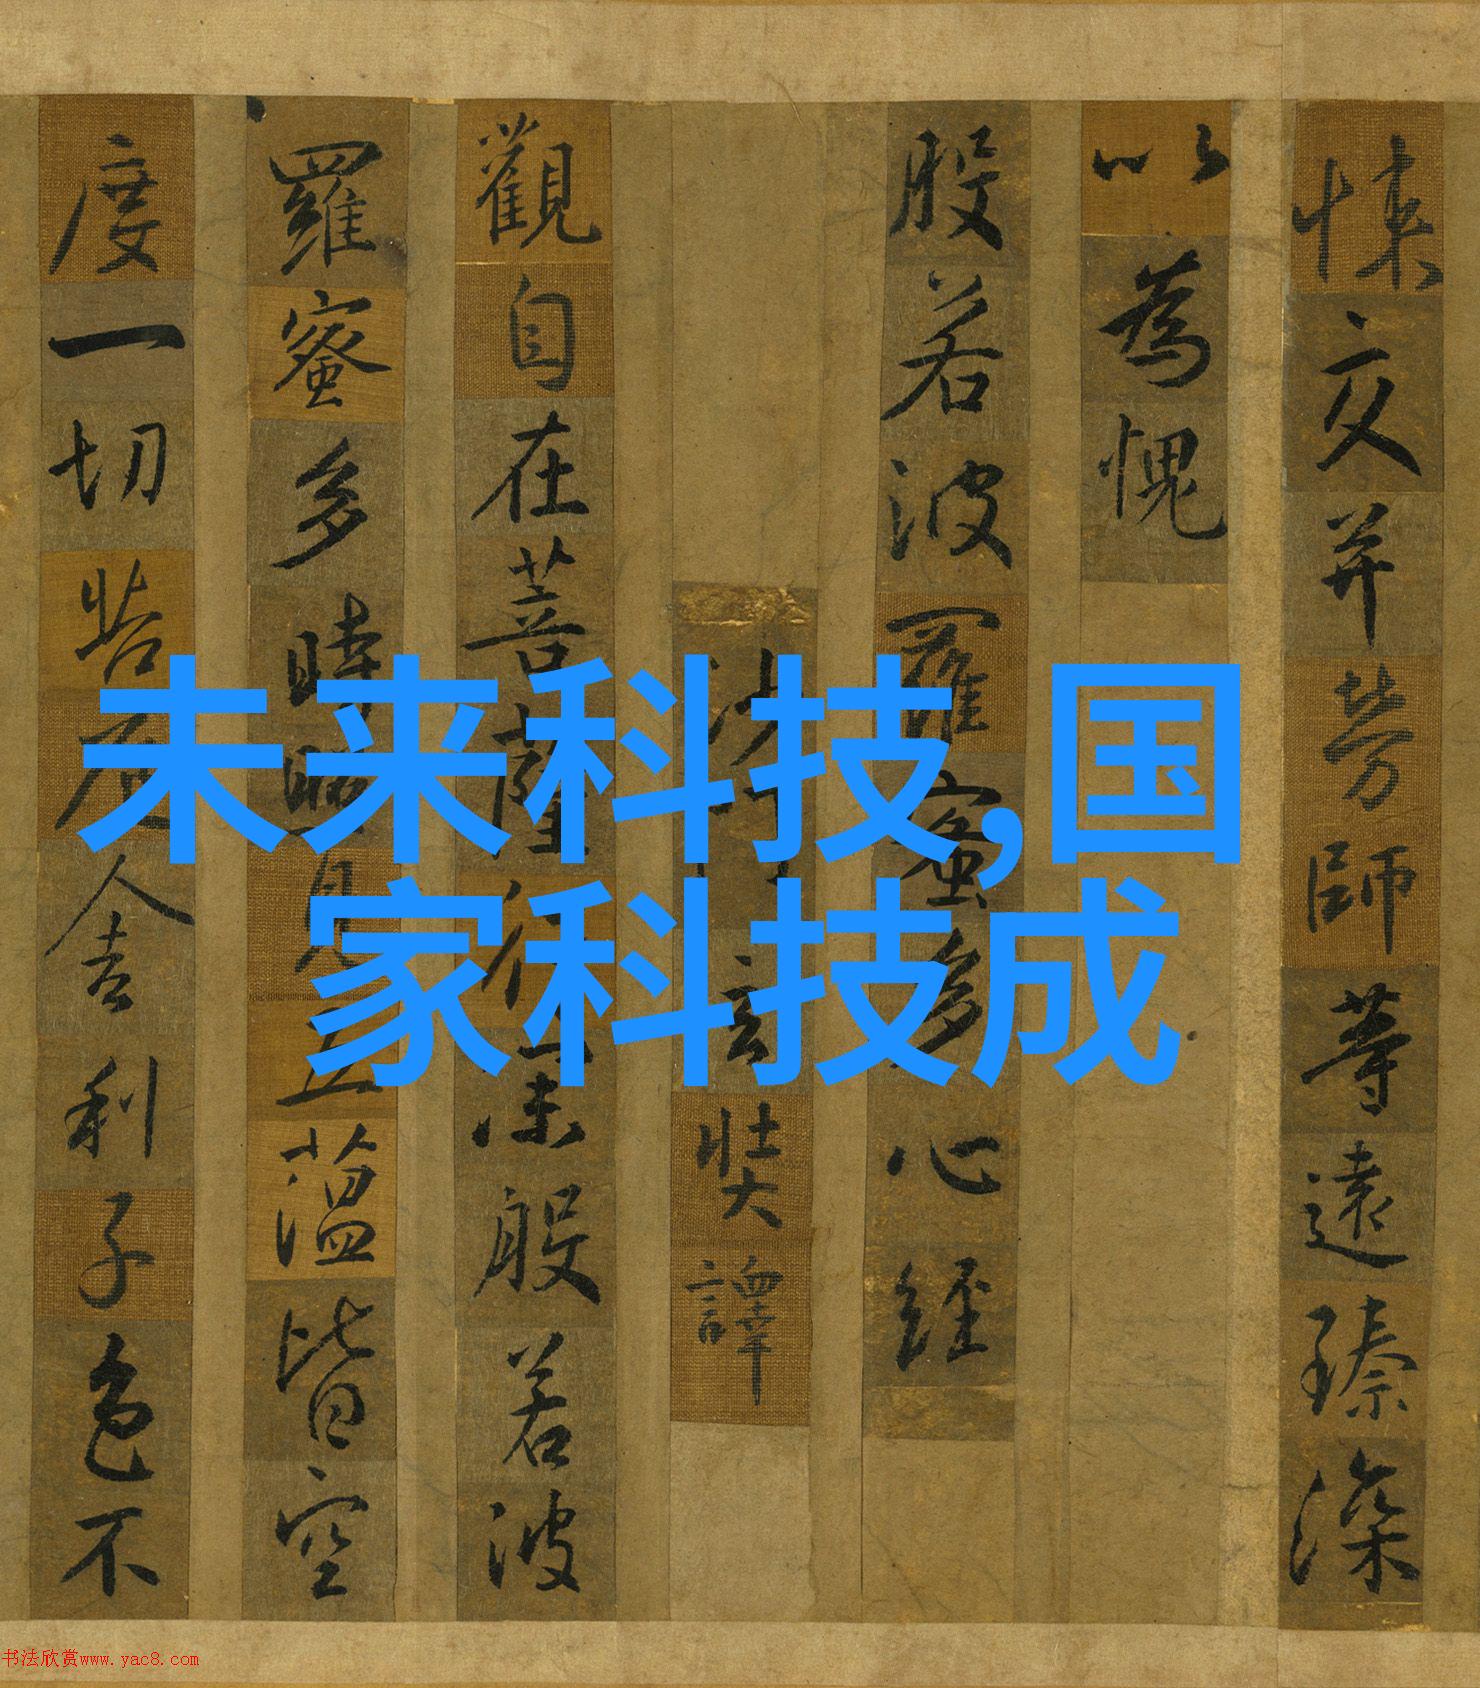 未来科技,国
家科技成
悚交并勞師等遠臻深
以為愧
般若波羅蜜多心經
沙門玄奘譯
觀自在菩薩行深般若波
羅蜜多時照見五蘊皆空
度一切苦厄舍利子色不
书法欣赏www.yac8.com